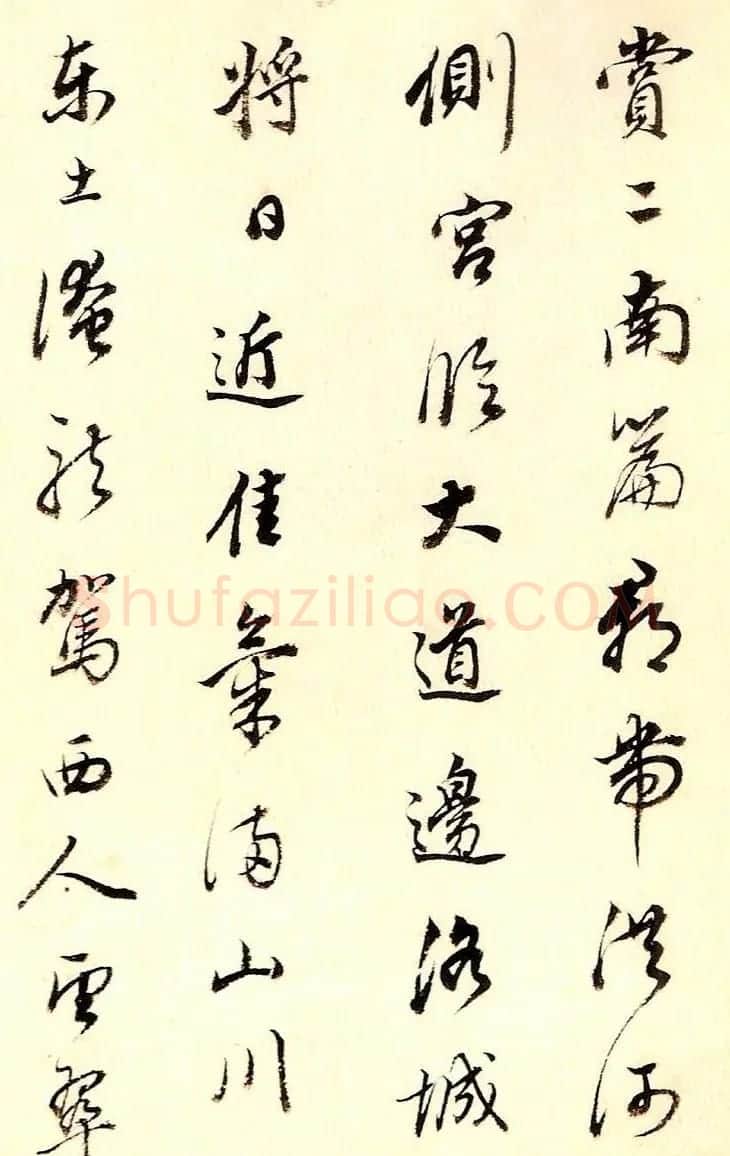 賞二南篇郡帶洪河
側宮臨大道邊洛城
將日近佳氣滿山川
東土淹龍駕西人望翠
Shufaziliao.COM